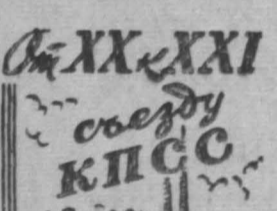 От XX к XXI
съезду
КПСС